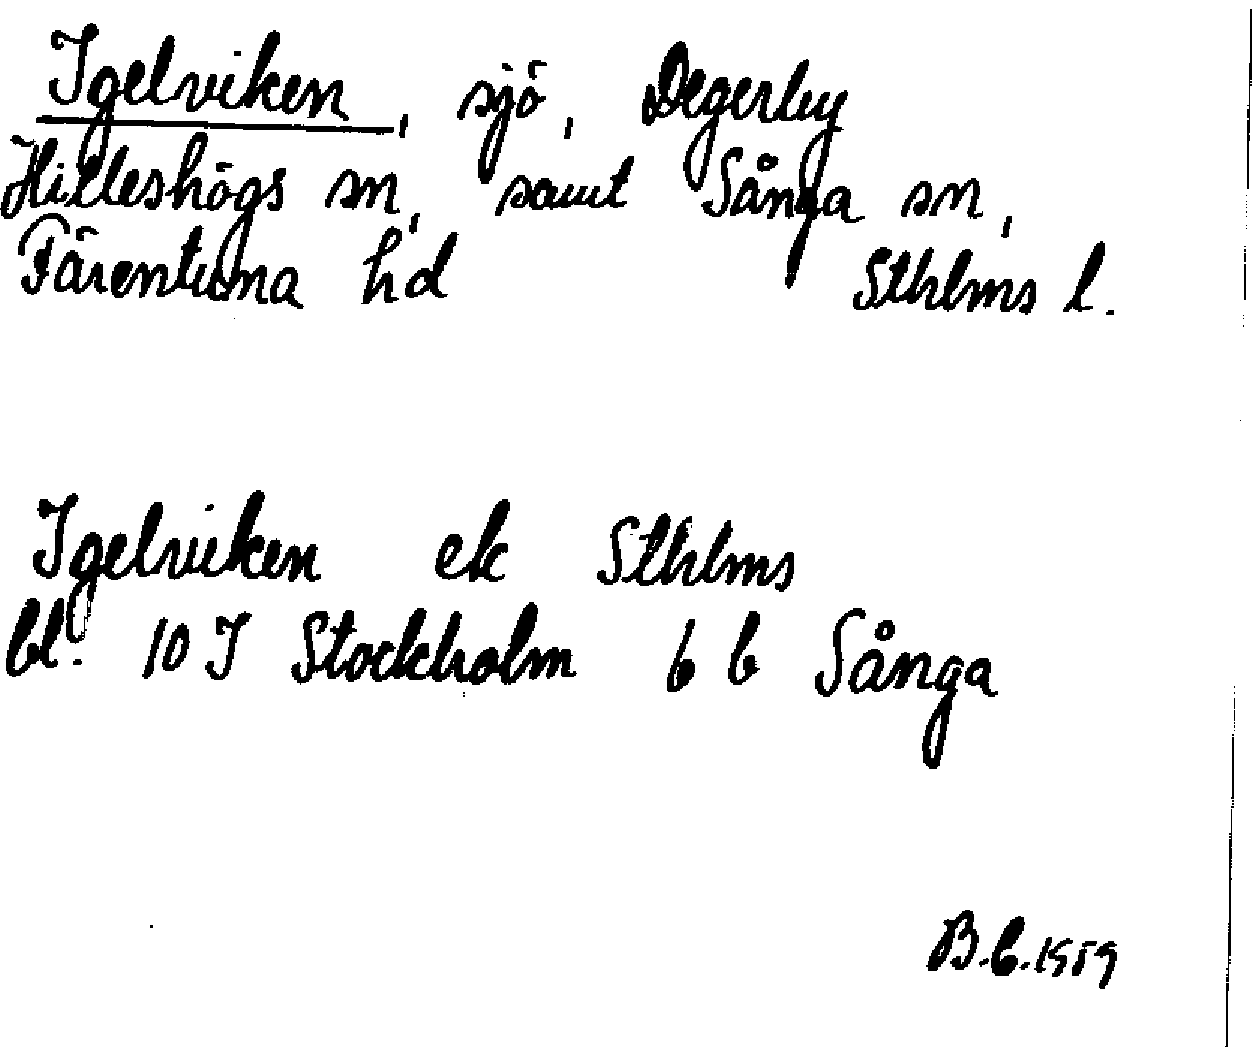 Igelviken, sjö, Degerby
Hilleshögs sn, samt Sånga sn,
Färentuna hd Sthlms l.
Igelviken ek Sthlms
bl. 10 I Stockholm 6 b Sånga
B.C.1959